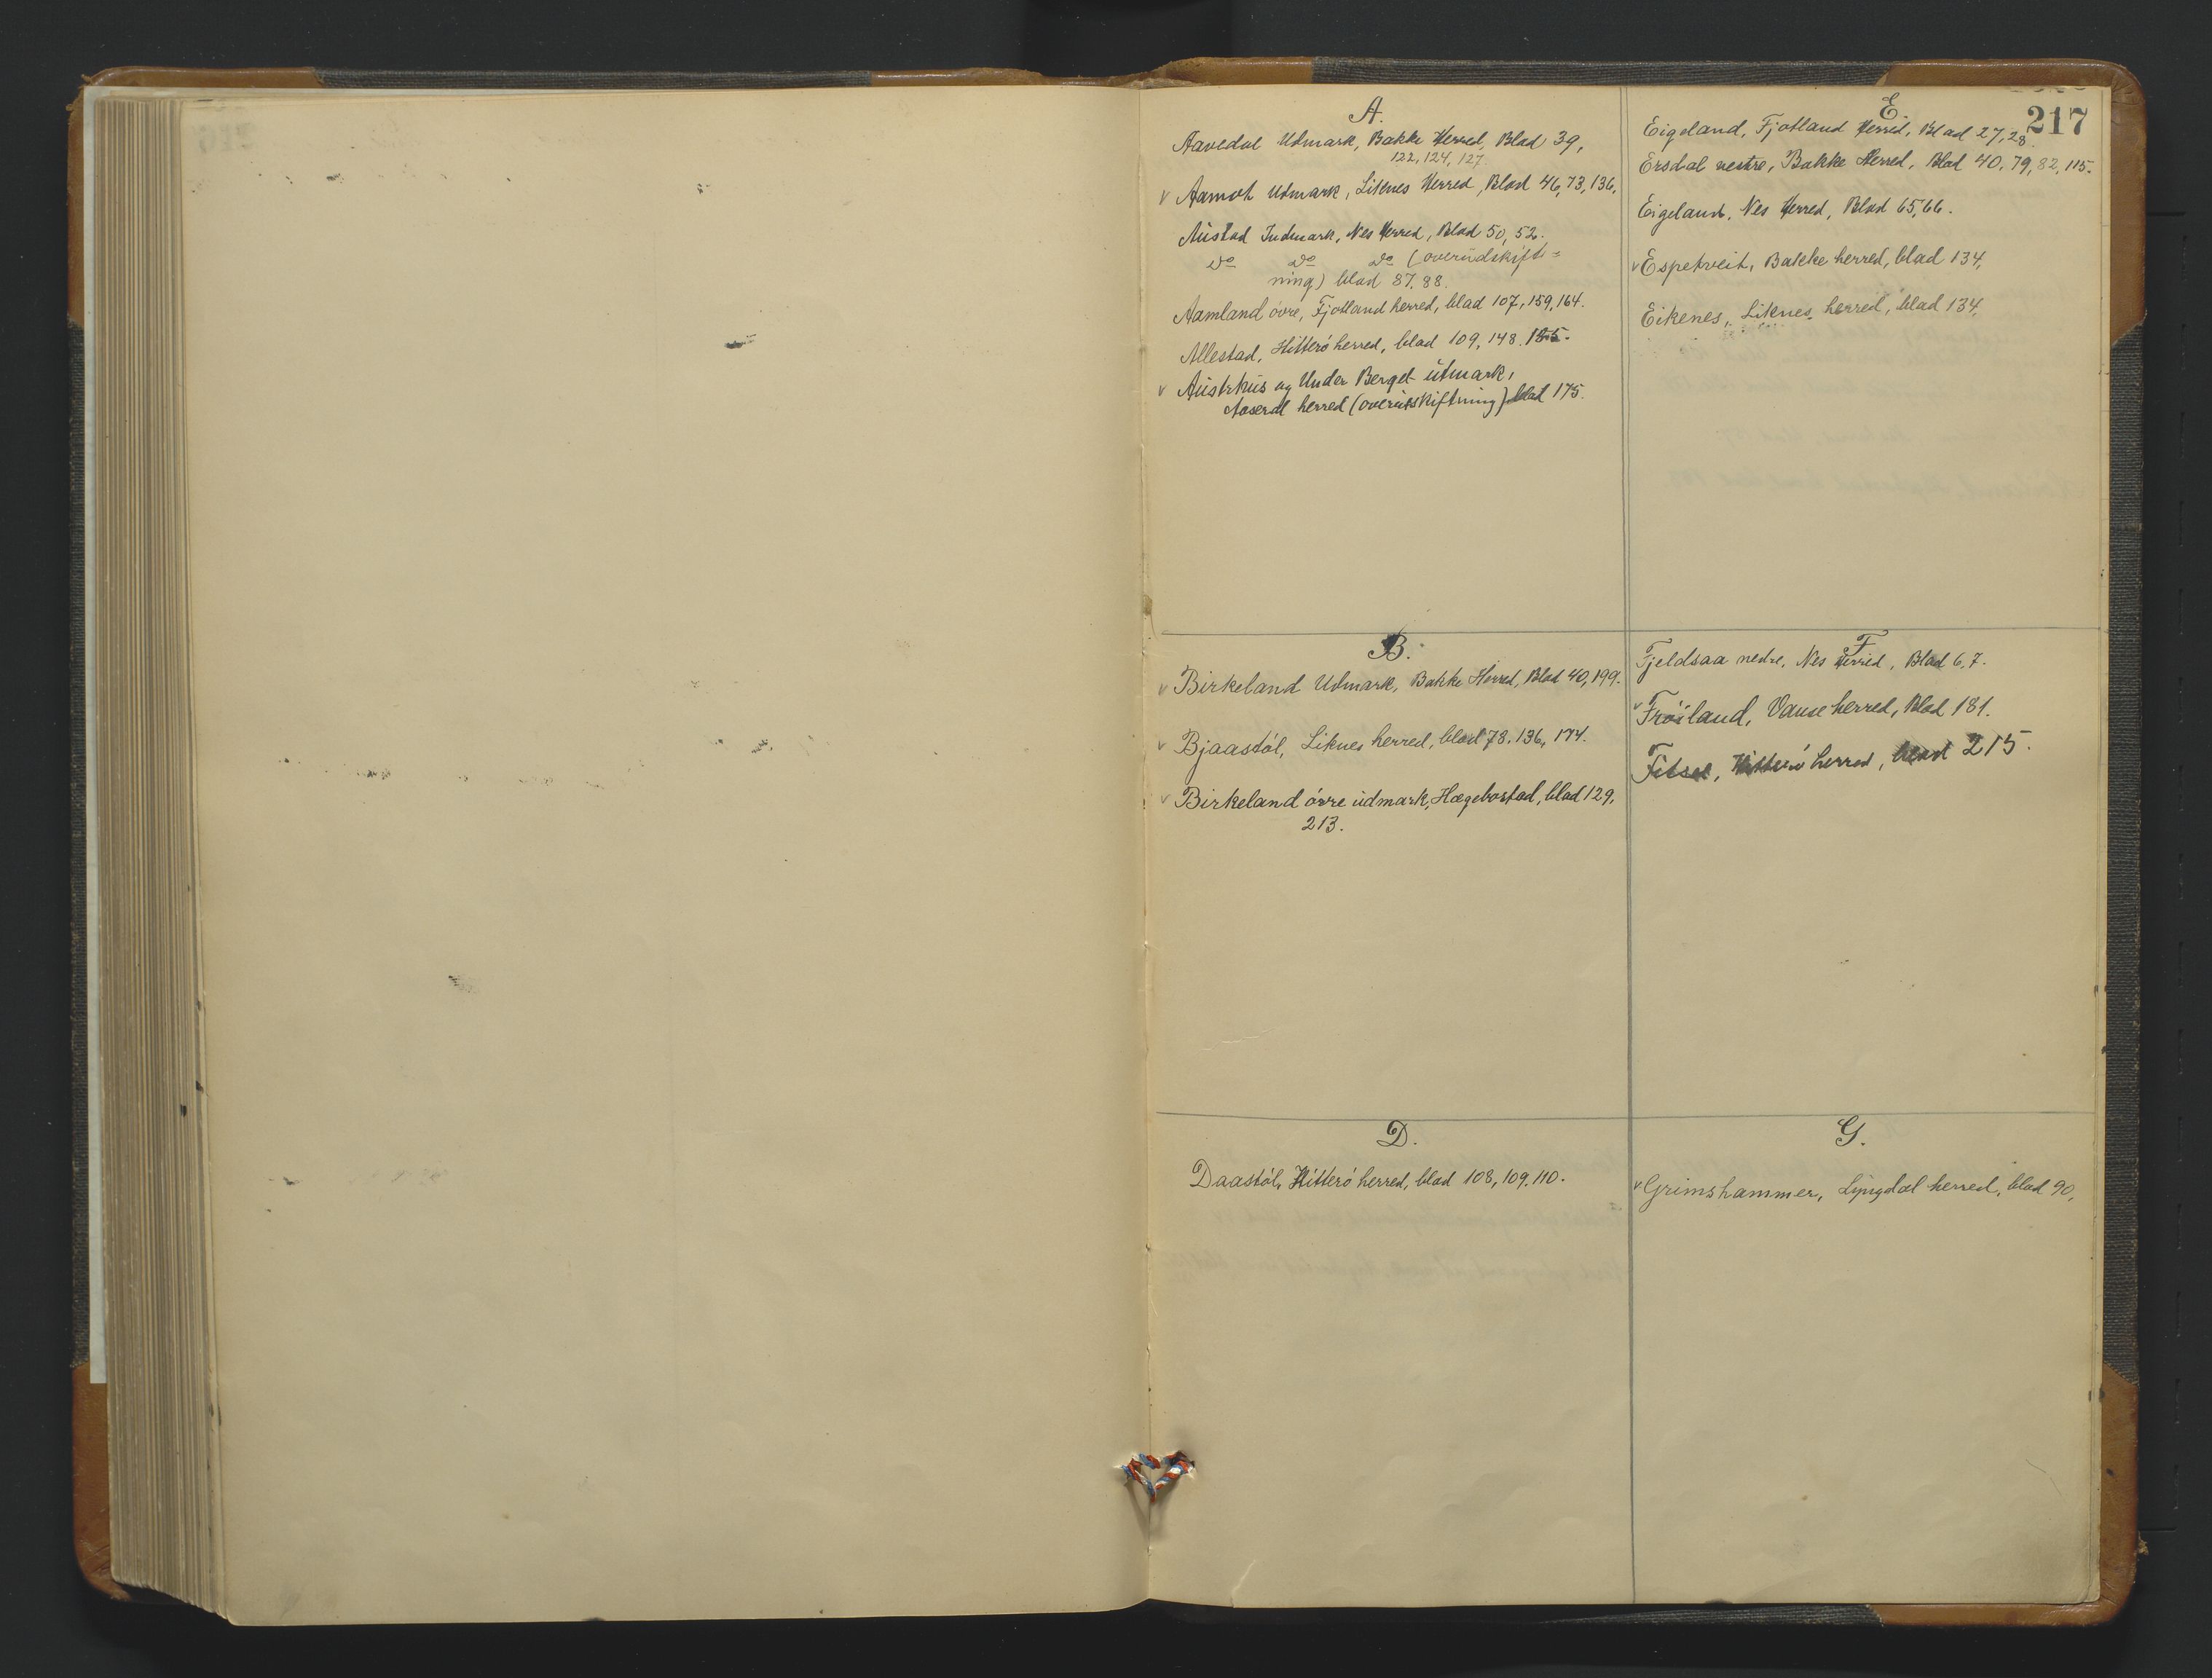 217
A.
Aavedal Udmark, Bakke Herred, Blad 39,
122, 124, 127.
v Aamot Udmark, Liknes Herred, Blad 46, 73, 136.
Austad Indmark, Nes Herred, Blad 50, 52.
do do do (overudskift=
ning) blad 87. 88.
Aamland övre, Fjotland herred, blad 107, 159, 164.
Allestad, Hitterö herred, blad 109, 148.
v Austrhus og Under Berget utmark,
Aaseral herred (overutskiftning) blad 175.
B.
v Birkeland Udmark, Bakke Herred, Blad 40, 199.
v Bjaastöl, Liknes herred, blad 78. 136, 174.
v Birkeland övre udmark, Hægebostad, blad 129,
213.
D.
Daastöl, Hitterö herred, blad 108, 109. 110.
E.
Eigeland, Fjotland Herred, Blad 27, 28.
Ersdal vestre, Bakke Herred, Blad 40, 79, 82, 115.
Eigeland, Nes Herred, Blad 65, 66.
v Espetveit, Bakke herred, blad 134,
Eikenes, Liknes herred, blad 134,
F
Fjeldsaa nedre, Nes Herred, Blad 6, 7.
v Fröiland, Vanse herred, Blad 181.
Hitterö herred, blad 215.
G.
v Grimshammer, Lyngdal herred, blad 90,